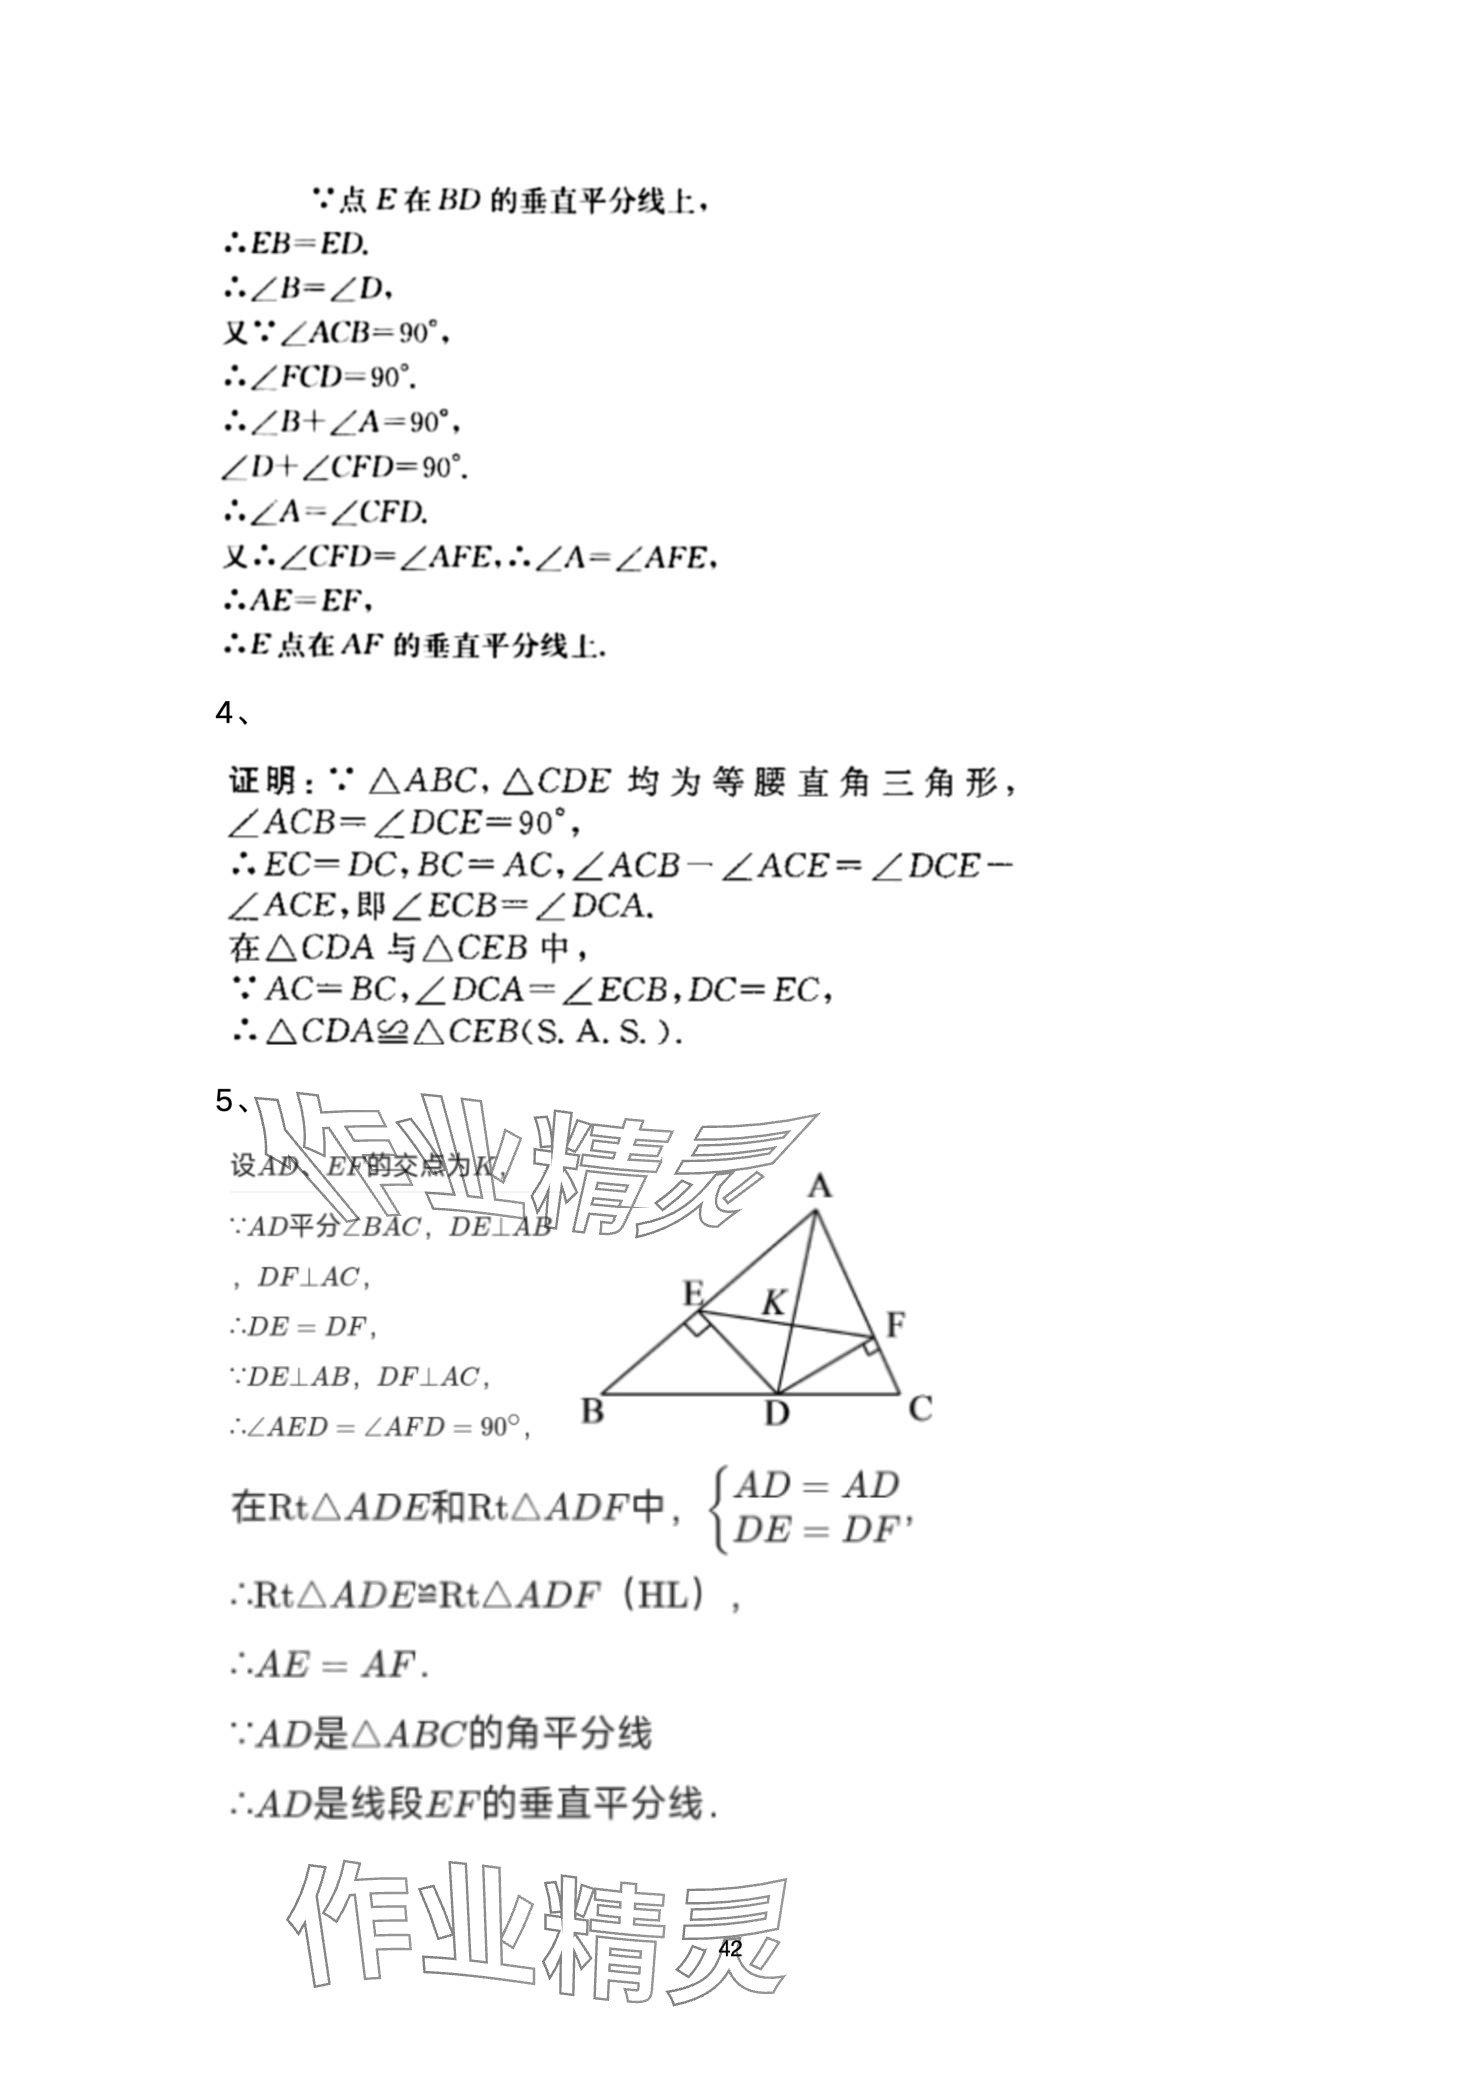 ∵点 E 在 BD 的垂直平分线上，
∴EB=ED.
∴∠B=∠D，
又∵∠ACB=90°，
∴∠FCD=90°.
∴∠B+∠A=90°，
∠D+∠CFD=90°.
∴∠A=∠CFD.
又∴∠CFD=∠AFE，∴∠A=∠AFE，
∴AE=EF，
∴E 点在 AF 的垂直平分线上.
4、
证明：∵△ABC，△CDE 均为等腰直角三角形，
∠ACB=∠DCE=90°，
∴EC=DC，BC=AC，∠ACB－∠ACE=∠DCE－
∠ACE，即∠ECB=∠DCA.
在△CDA 与△CEB 中，
∵AC=BC，∠DCA=∠ECB，DC=EC，
∴△CDA≌△CEB(S.A.S.).
5、
作业精灵
设AD、EF的交点为K，
∵AD平分∠BAC，DE⊥AB
，DF⊥AC，
∴DE=DF，
∵DE⊥AB，DF⊥AC，
∴∠AED=∠AFD=90°，
A
E
K
F
B
D
C
在Rt△ADE和Rt△ADF中，{AD=AD
DE=DF，
∴Rt△ADE≌Rt△ADF（HL），
∴AE=AF.
∵AD是△ABC的角平分线
∴AD是线段EF的垂直平分线.
作业精灵
42